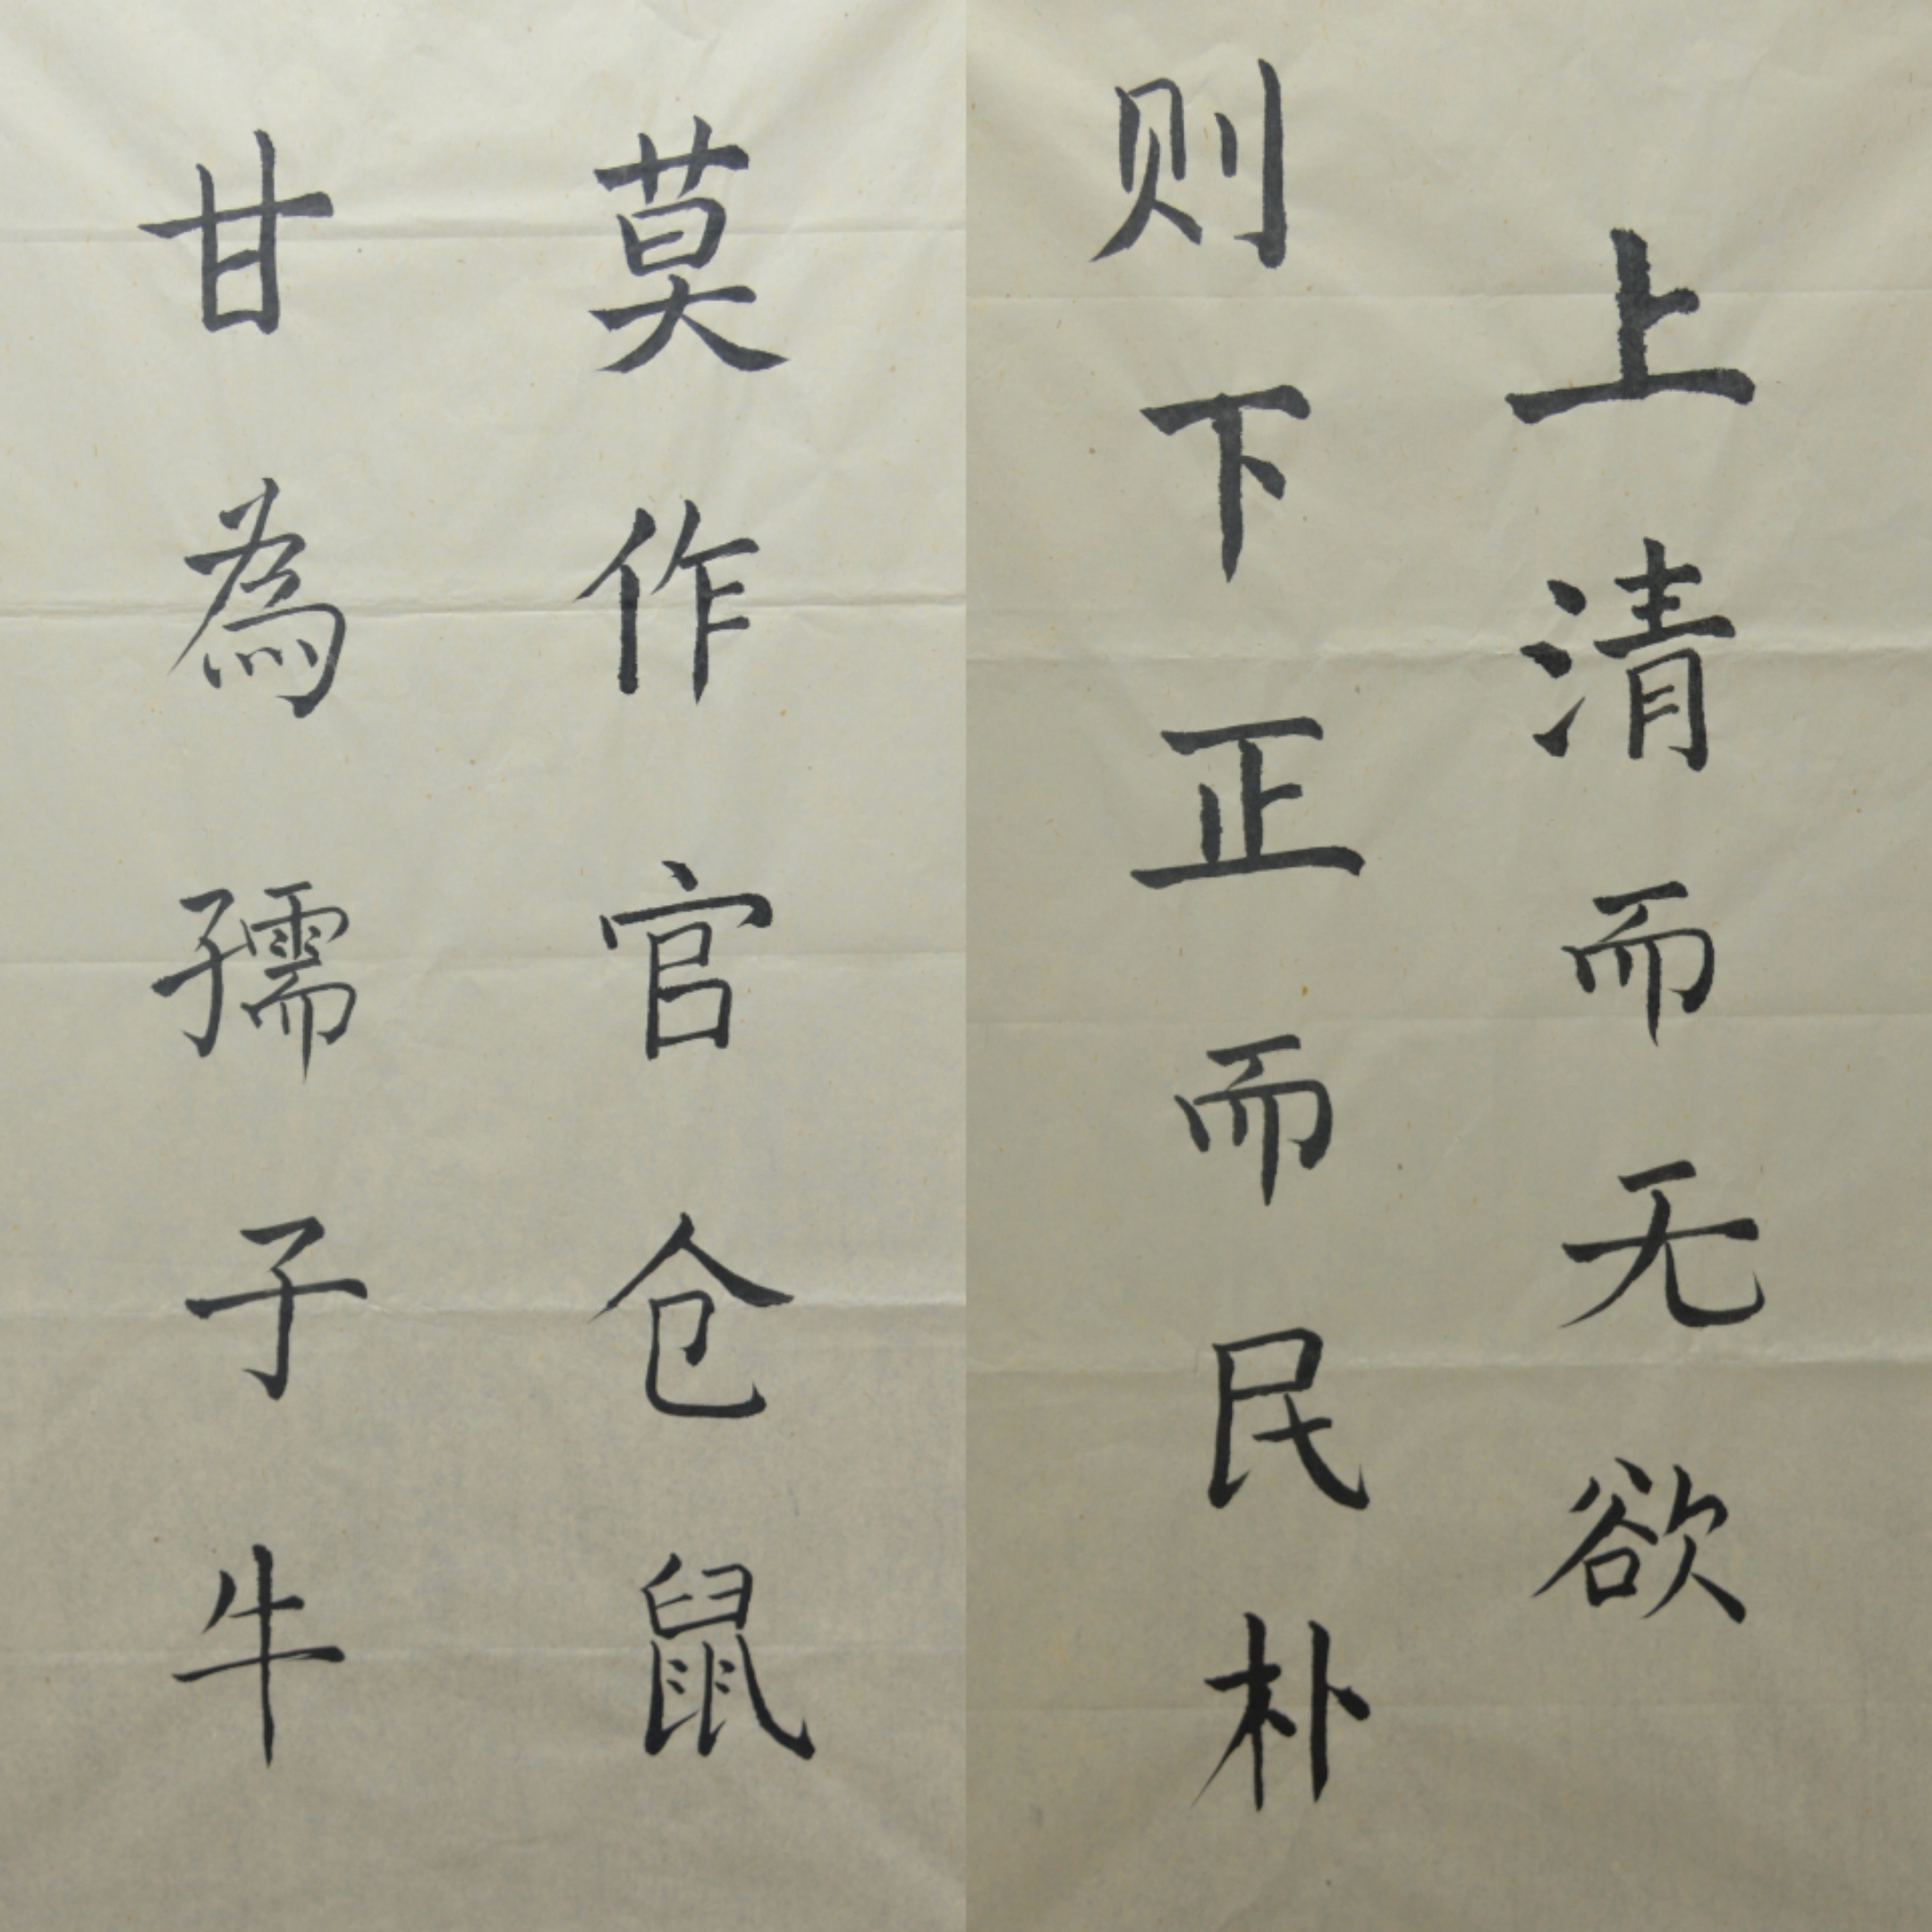 上清而无欲
则下正而民朴
莫作官仓鼠
甘為孺子牛